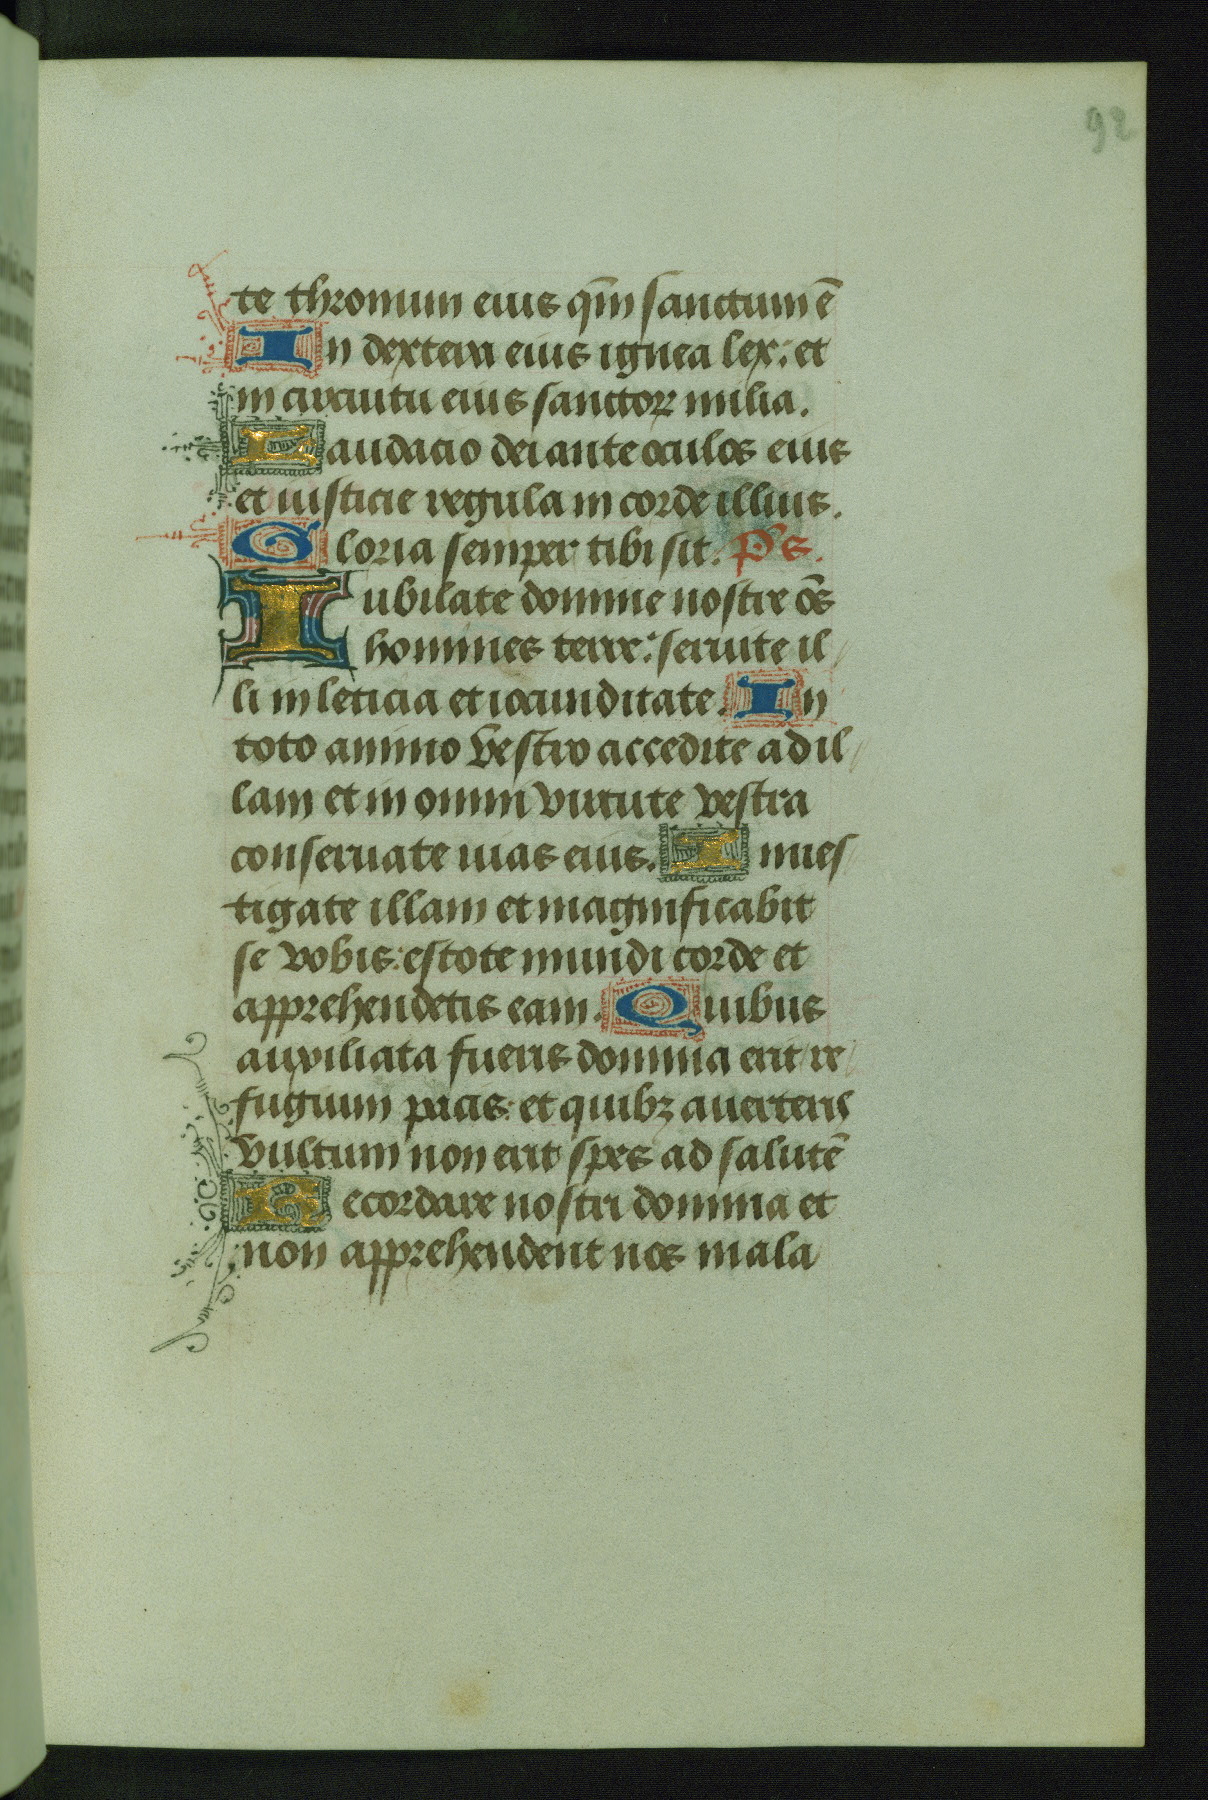 92
te thronum eius qm̄ sanctum ē
In dextera eius ignea lex: et
in circuitu eius sanctoꝝ milia.
Laudacio dei ante oculos eius
et iusticie regula in corde illius.
Gloria semper tibi sit. Ps.
Iubilate domine nostre oēs
homines terre: seruite il
li in leticia et iocunditate. In
toto animo vestro accedite ad il
lam et in omni virtute vestra
conseruate uias eius. Inues
tigate illam et magnificabit
se vobis: estote mundi corde et
apprehendetis eam. Quibus
auxiliata fueris domina erit re
fugium pacis: et quibꝫ auerteris
vultum non erit spes ad salutē
Recordare nostri domina et
non apprehendent nos mala